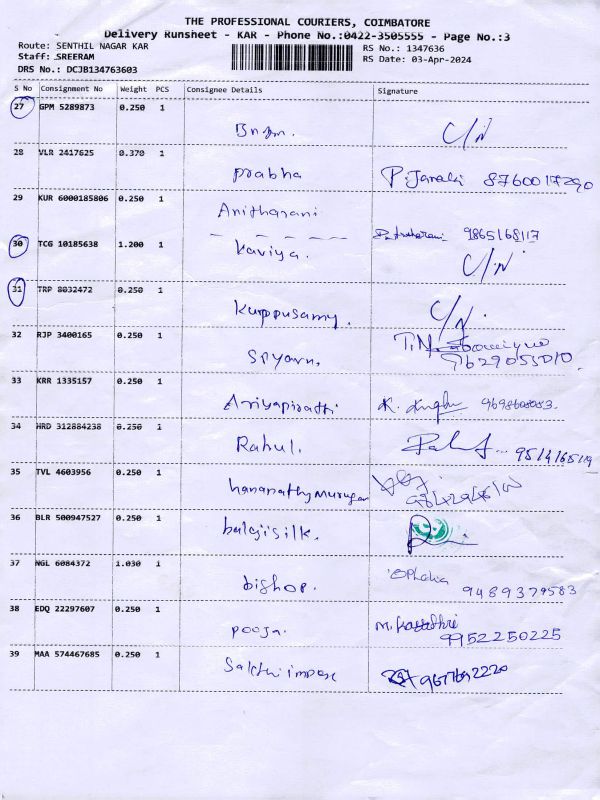 THE PROFESSIONAL COURIERS, COIMBATORE
Delivery Runsheet - KAR - Phone No.:0422-3505555 - Page No.:3
Route: SENTHIL NAGAR KAR RS No.: 1347636
Staff: SREERAM RS Date: 03-Apr-2024
DRS No.: DCJB134763603
S No Consignment No Weight PCS Consignee Details Signature
27 GPM 5289873 0.250 1
C/N
28 VLR 2417625 0.370 1
Prabha P. Janaki 8760017290
29 KUR 6000185806 0.250 1
Anitharani
9865168117
30 TCG 10185638 1.200 1
Kaviya. C/N
31 TRP 8032472 0.250 1
Kuppusamy. C/N.
32 RJP 3400165 0.250 1
33 KRR 1335157 0.250 1
34 HRD 312884238 0.250 1
Rahul.
35 TVL 4603956 0.250 1
36 BLR 500947527 0.250 1
balajisilk.
37 NGL 6084372 1.030 1
bishop. 9489379583
38 EDQ 22297607 0.250 1
Pooja. 9952250225
39 MAA 574467685 0.250 1
Sakthi 9677692220